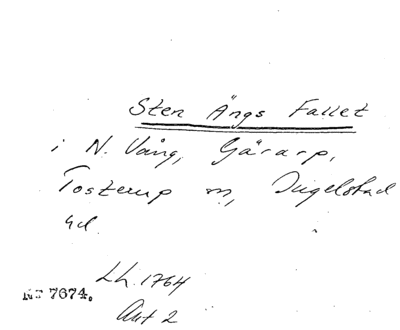 Sten Ängs Fallet
i N. Vång, Gärarp,
Tosterup m, Ingelstad
hd.
Lh. 1764
Akt 2
NE 7674.